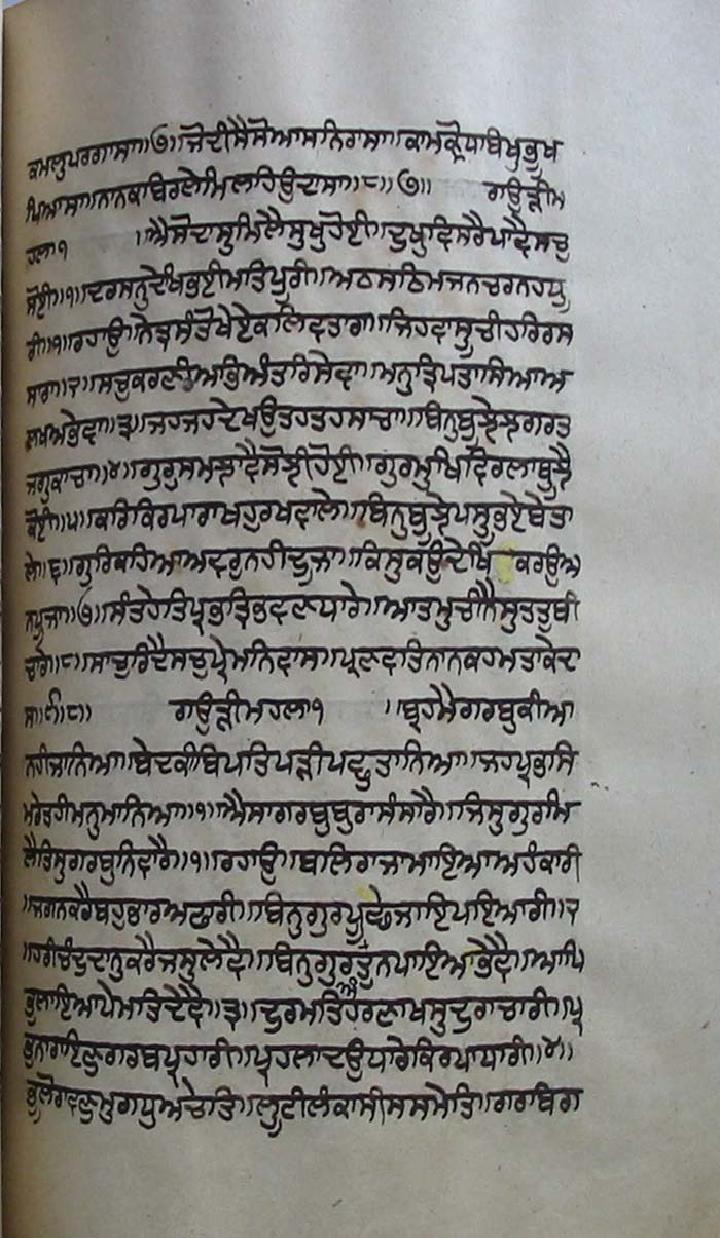 ਕਮਲੁਪਰਗਾਸਾ॥੭॥ਜੋਦੀਸੈਸੋਆਸਨਿਰਾਸਾ॥ਕਾਮਕ੍ਰੋਧਾਬਿਖੁਭੂਖ
ਪਿਆਸਾ॥ਨਾਨਕਬਿਰਲੇਮਿਲਹਿਉਦਾਸਾ॥੮॥੭॥ ਗਉੜੀਮ
ਹਲਾ੧ ॥ਐਸੋਦਾਸੁਮਿਲੈਸੁਖੁਹੋਈ॥ਦੁਖੁਵਿਸਰੈਪਾਵੈਸਚੁ
ਸੋਈ॥੧॥ਦਰਸਨੁਦੇਖਿਭਈਮਤਿਪੂਰੀ॥ਅਠਸਠਿਮਜਨਚਰਨਹਧੂ
ਰੀ॥੧॥ਰਹਾਉ॥ਨੇਤ੍ਰਸੰਤੋਖੇਏਕਲਿਵਤਾਰਾ॥ਜਿਹਵਾਸੂਚੀਹਰਿਰਸ
ਸਾਰਾ॥੨॥ਸਚੁਕਰਣੀਅਭਿਅੰਤਰਿਸੇਵਾ॥ਮਨੁਤ੍ਰਿਪਤਾਸਿਆਅ
ਲਖਅਭੇਵਾ॥੩॥ਜਹਜਹਦੇਖਉਤਹਤਹਸਾਚਾ॥ਬਿਨੁਬੂਝੇਝਗਰਤ
ਜਗੁਕਾਚਾ॥੪॥ਗੁਰੁਸਮਝਾਵੈਸੋਝੀਹੋਈ॥ਗੁਰਮੁਖਿਵਿਰਲਾਬੂਝੈ
ਕੋਈ॥੫॥ਕਰਿਕਿਰਪਾਰਾਖਹੁਰਖਵਾਲੇ॥ਬਿਨੁਬੂਝੇਪਸੂਭਏਬੇਤਾ
ਲੇ॥੬॥ਗੁਰਿਕਹਿਆਅਵਰੁਨਹੀਦੂਜਾ॥ਕਿਸੁਕਉਦੇਖਿ ਕਰਉਅ
ਨਪੂਜਾ॥੭॥ਸੰਤਹੇਤਿਪ੍ਰਭਤ੍ਰਿਭਵਣਧਾਰੇ॥ਆਤਮੁਚੀਨੈਸੁਤਤੁਬੀ
ਚਾਰੇ॥੮॥ਸਾਚੁਰਿਦੈਸਚੁਪ੍ਰੇਮਨਿਵਾਸ॥ਪ੍ਰਣਵਤਿਨਾਨਕਹਮਤਾਕੇਦਾ
ਸ॥੯॥੮॥ ਗਉੜੀਮਹਲਾ੧ ॥ਬ੍ਰਹਮੈਗਰਬੁਕੀਆ
ਨਹੀਜਾਨਿਆ॥ਬੇਦਕੀਬਿਪਤਿਪੜੀਪਛੁਤਾਨਿਆ॥ਜਹਪ੍ਰਭਸਿ
ਮਰੇਤਹੀਮਨੁਮਾਨਿਆ॥੧॥ਐਸਾਗਰਬੁਬੁਰਾਸੰਸਾਰੈ॥ਜਿਸੁਗੁਰੁਮਿ
ਲੈਤਿਸੁਗਰਬੁਨਿਵਾਰੈ॥੧॥ਰਹਾਉ॥ਬਲਿਰਾਜਾਮਾਇਆਅਹੰਕਾਰੀ
॥ਜਗਨਕਰੈਬਹੁਭਾਰਅਫਾਰੀ॥ਬਿਨੁਗੁਰਪੂਛੇਜਾਇਪਇਆਰੀ॥੨
॥ਹਰੀਚੰਦੁਦਾਨੁਕਰੈਜਸੁਲੇਵੈ॥ਬਿਨੁਗੁਰਅੰਤੁਨਪਾਇਆਭੇਵੈ॥ਆਪਿ
ਭੁਲਾਇਆਪੇਮਤਿਦੇਵੈ॥੩॥ਦੁਰਮਤਿਹਰਣਾਖਸੁਦੁਰਾਚਾਰੀ॥ਪ੍ਰ
ਭੁਨਾਰਾਇਣੁਗਰਬਪ੍ਰਹਾਰੀ॥ਪ੍ਰਹਲਾਦਉਧਾਰੇਕਿਰਪਾਧਾਰੀ॥੪॥
ਭੂਲੋਰਾਵਣੁਮੁਗਧੁਅਚੇਤਿ॥ਲੂਟੀਲੰਕਾਸੀਸਸਮੇਤਿ॥ਗਰਬਿਗ